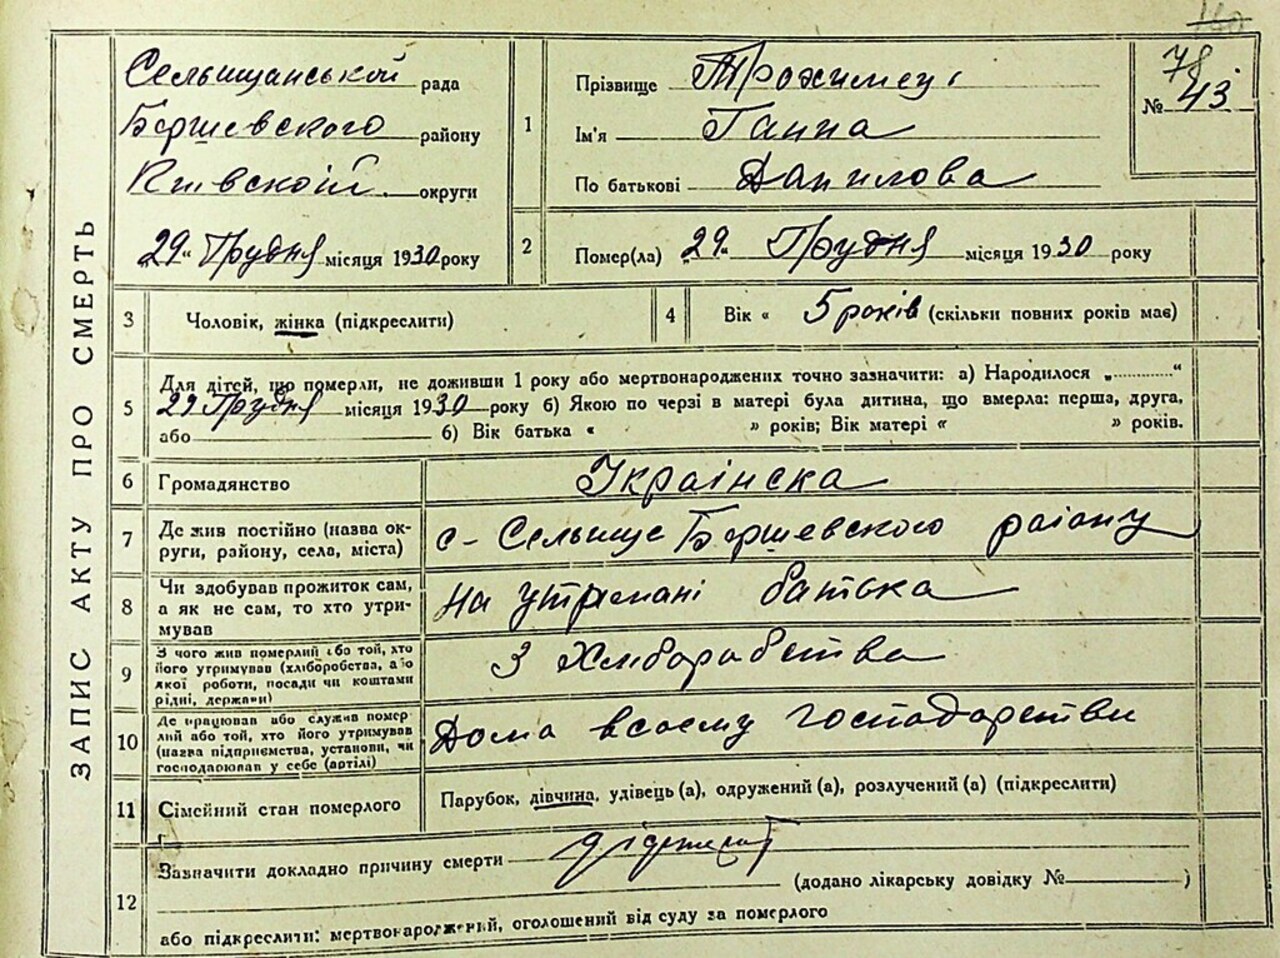 140
ЗАПИС АКТУ ПРО СМЕРТЬ
Сельищанськой рада
району
Київской округи
„29“ Грудня місяця 1930 року
1
Прізвище Трохимець
Ім'я Ганна
По батькові Данилова
78
№ 43
2
Помер(ла) „29“ Грудня місяця 1930 року
3 Чоловік, жінка (підкреслити)
4 Вік « 5 років (скільки повних років має)
5
Для дітей, що померли, не доживши 1 року або мертвонароджених точно зазначити: а) Народилося „............“
29 Грудня місяця 1930 року б) Якою по черзі в матері була дитина, що вмерла: перша, друга,
або б) Вік батька « » років; Вік матері « » років.
6 Громадянство Українска
7
Де жив постійно (назва ок-
руги, району, села, міста)
с- Сельище району
8
Чи здобував прожиток сам,
а як не сам, то хто утри-
мував
на утримані батька
9
З чого жив померлий або той, хто
його утримував (хліборобства, або
якої роботи, посади чи коштами
рідні, держави)
З Хліборабства
10
Де працював або служив помер
лий або той, хто його утримував
(назва підприємства, установи, чи
господарював у себе (артілі)
Дома всоему господарстви
11 Сімейний стан померлого
Парубок, дівчина, удівець (а), одружений (а), розлучений (а) (підкреслити)
12
Зазначити докладно причину смерти
(додано лікарську довідку № )
або підкреслити: мертвонароджений, оголошений від суду за померлого